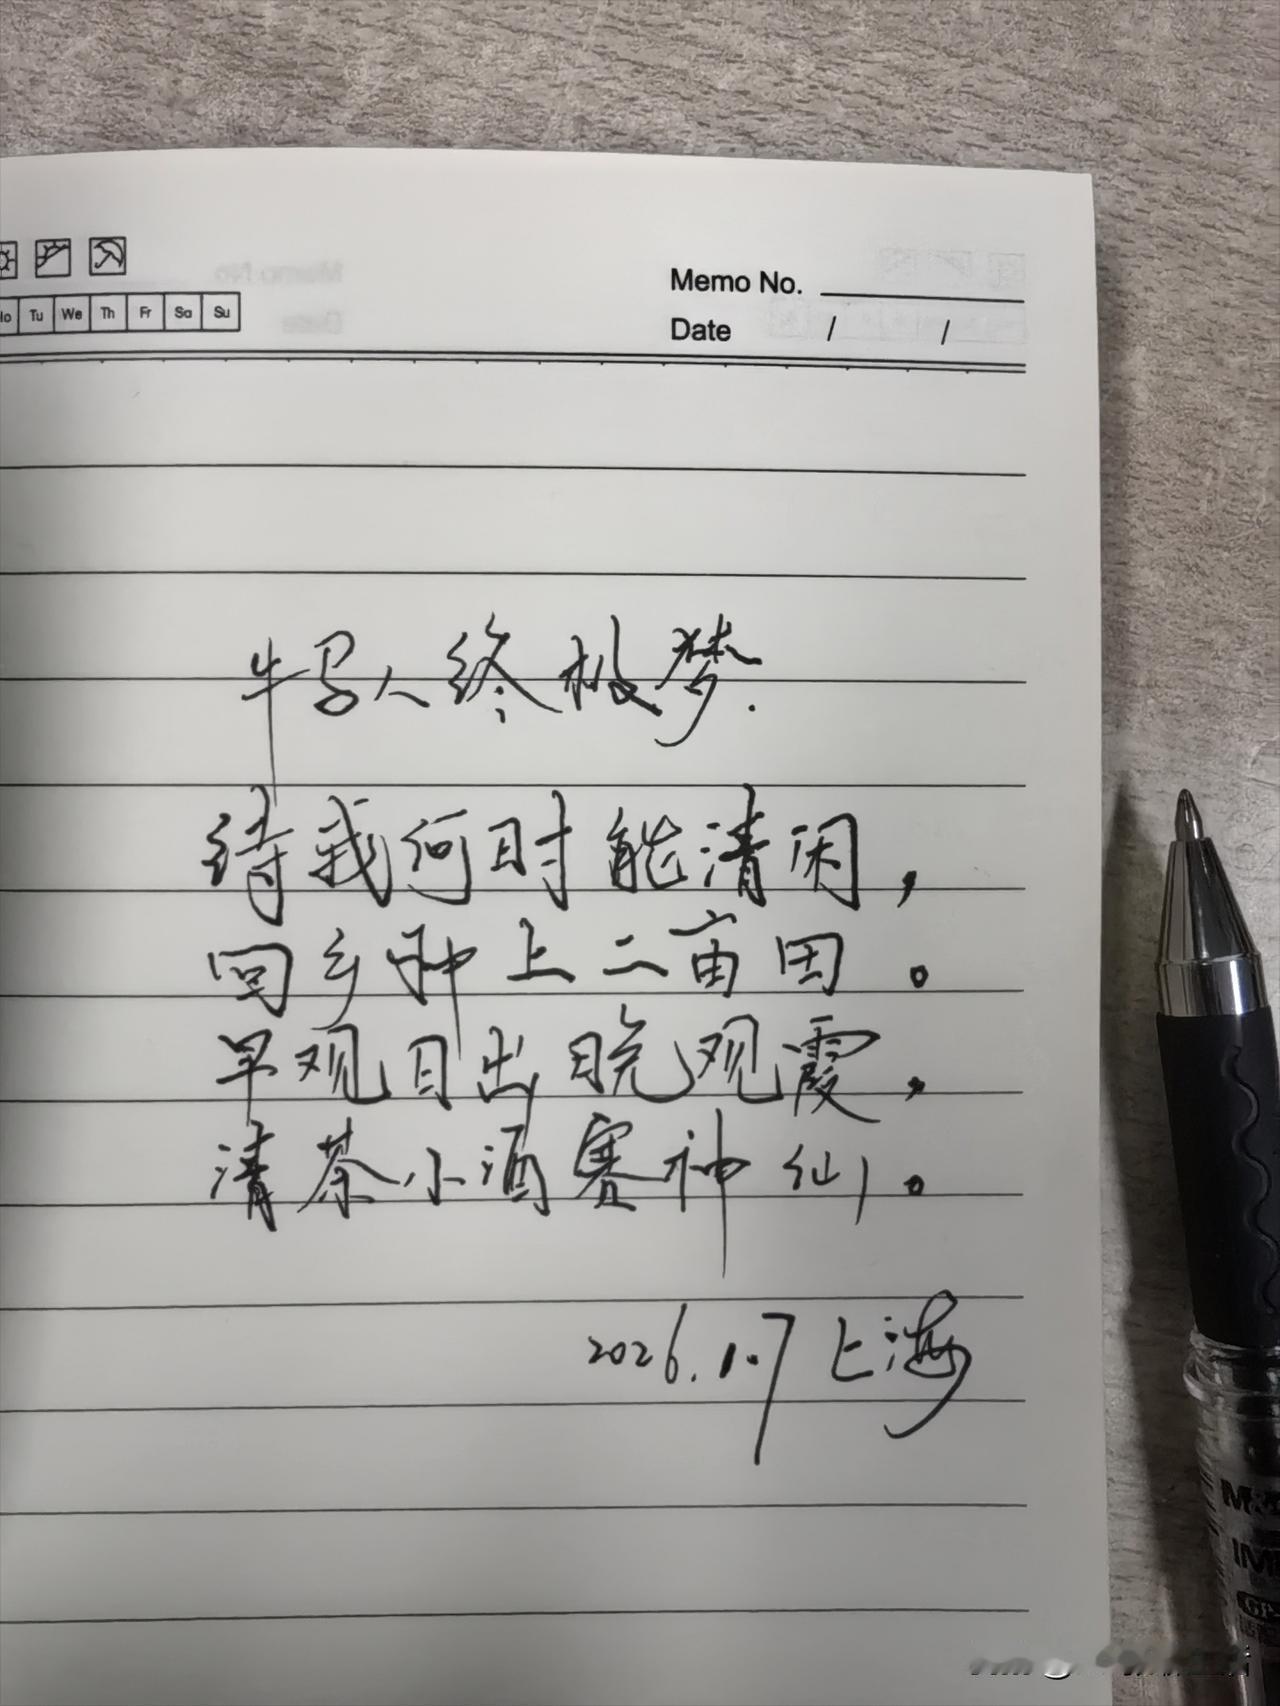 Mo Tu We Th Fr Sa Su
Memo No.
Date / /
牛马人终极梦.
待我何时能清闲，
回乡种上二亩田。
早观日出晚观霞，
清茶小酒赛神仙。
2026.1.7 上海